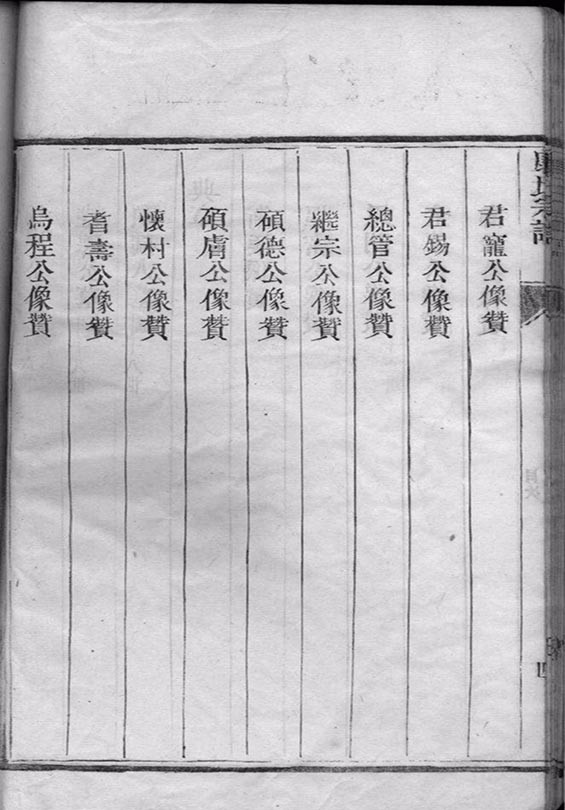 君寵公像贊
君錫公像贊
總管公像贊
繼宗公像贊
碩德公像贊
碩膚公像贊
懷村公像贊
耆壽公像贊
烏程公像贊